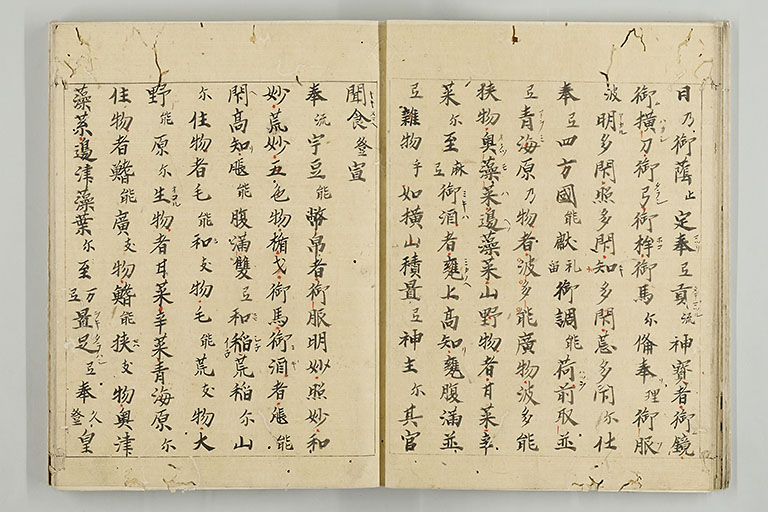 日乃御蔭止定奉弖貢流神寶者御鏡
御横刀御弓御桙御馬尓俻奉理御服
波明多閇照多閇知多閇多閇尓仕
奉弖四方國能獻礼留御調能荷前取並
弖青海原乃物者波多能廣物波多能
狭物奥藻菜邊藻菜山野物者甘菜辛
菜尓至麻弖御酒者甕上高知甕腹滿並
弖雜物乎如横山積置弖神主尓其官
聞食登宣
奉流宇豆能幣帛者御服明妙照妙和
妙荒妙五色物楯戈御馬御酒者能
閇高知能腹滿雙弖和稲荒稲尓山
尓住物者毛能和支物毛能荒支物大
野能原尓生物者甘菜辛菜青海原尓
住物者鰭能廣支物鰭能狭支物奥津
藻菜邊津藻葉尓至万弖置足弖奉久登皇